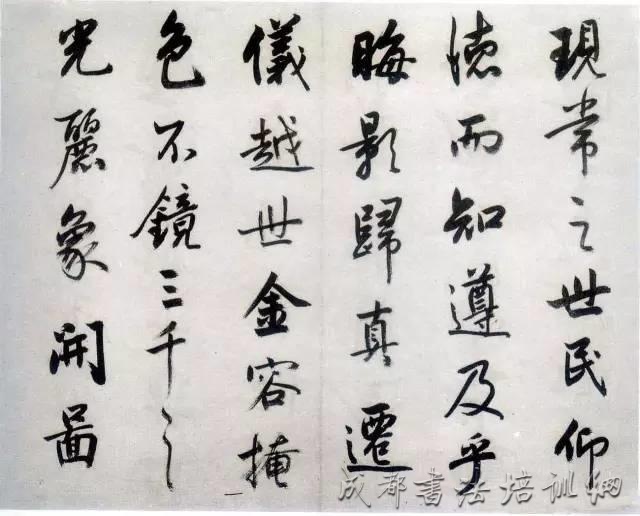 現常之世民仰
德而知遵及乎
晦影歸真遷
儀越世金容掩
色不鏡三千之
光麗象開圖
成都書法培训网